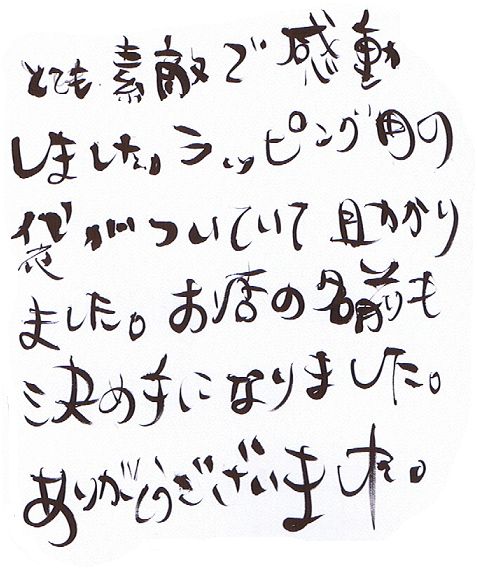 とても素敵で感動
しました。ラッピング用の
袋がついていて助かり
ました。お店の名前も
決め手になりました。
ありがとうございました。